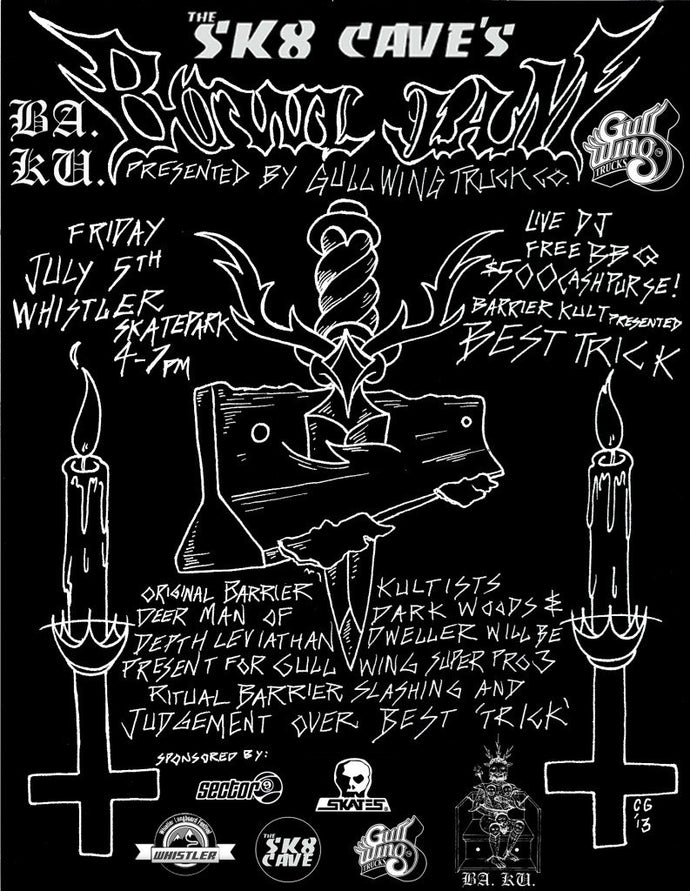 THE
SK8 CAVE'S
BOWL JAM
BA.
KU.
PRESENTED BY GULLWING TRUCK CO.
Gull
Wing
TRUCKS
FRIDAY
JULY 5TH
WHISTLER
SKATEPARK
4-7PM
LIVE DJ
FREE BBQ
$500 CASH PURSE!
BARRIER KULT PRESENTED
BEST TRICK
ORIGINAL BARRIER KULTISTS
DEER MAN OF DARK WOODS &
DEPTH LEVIATHAN DWELLER WILL BE
PRESENT FOR GULL WING SUPER PRO 3
RITUAL BARRIER SLASHING AND
JUDGEMENT OVER BEST 'TRICK'
SPONSORED BY:
sector 9
SKATES
Whistler Longboard Festival
WHISTLER
THE
SK8
CAVE
Gull
Wing
TRUCKS
BA. KU.
CG
'13